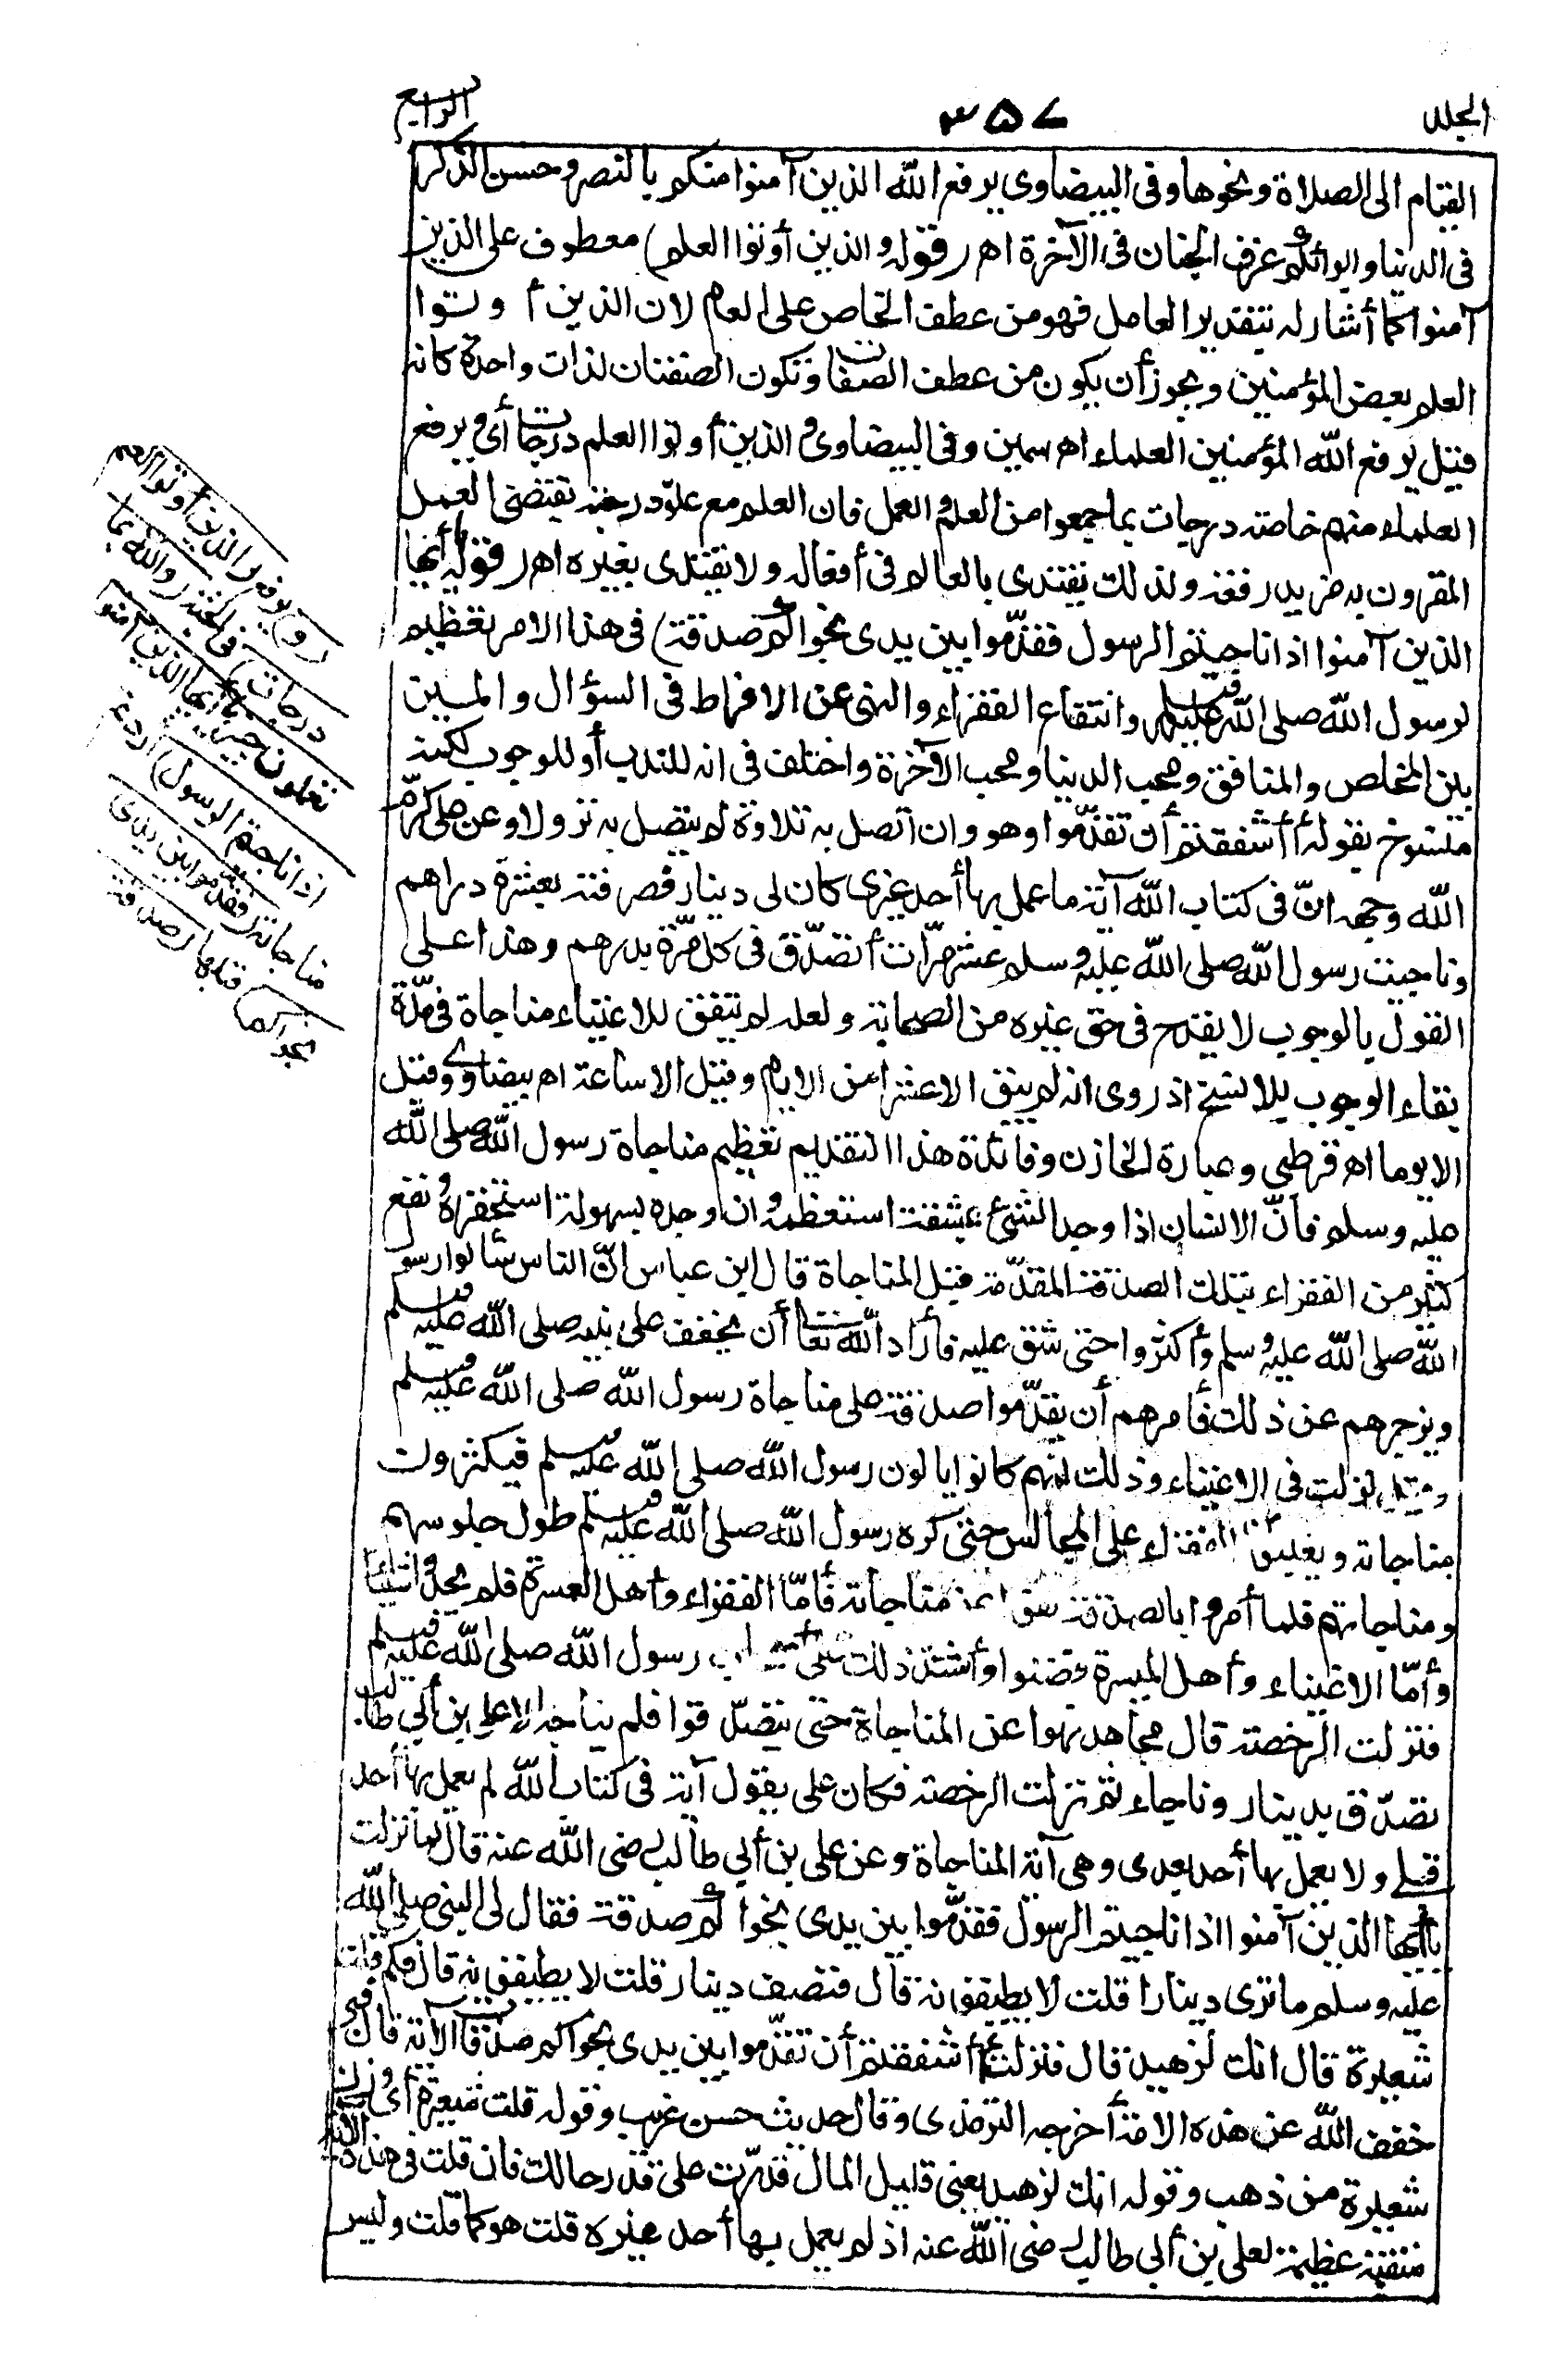 المجلد ٣٥٧ الرابع
القيام الى الصلاة ونحوها وفى البيضاوى يرفع الله الذين آمنوا منكم بالنصر وحسن الذكر
فى الدنيا وايوائكم غرف الجنان فى الآخرة اهر (قوله والذين أوتوا العلم) معطوف على الذين
آمنوا كما أشار له بتقدير العامل فهو من عطف الخاص على العام لان الذين أوتوا
العلم بعض المؤمنين ويجوز أن يكون من عطف الصفات وتكون الصفتان لذات واحدة كانه
قيل يرفع الله المؤمنين العلماء اهر سمين وفى البيضاوى والذين أوتوا العلم درجات أى ويرفع
العلماء منهم خاصة درجات بما جمعوا من العلم والعمل فان العلم مع علو درجته يقتضى العمل
المقرون به مزيد رفعة ولذلك يقتدى بالعالم فى أفعاله ولا يقتدى بغيره اهر (قوله ياأيها
الذين آمنوا اذا ناجيتم الرسول فقدّموا بين يدى نجواكم صدقة) فى هذا الامر تعظيم
لرسول الله صلى الله عليه وسلم وانتفاع الفقراء والنهى عن الافراط فى السؤال والميز
بين المخلص والمنافق ومحب الدنيا ومحب الآخرة واختلف فى انه للندب أو للوجوب لكنه
منسوخ بقوله أأشفقتم أن تقدّموا وهو وان اتصل به تلاوة لم يتصل به نزولا وعن على كرّم
الله وجهه انّ فى كتاب الله آية ما عمل بها أحد غيرى كان لى دينار فصرفته بعشرة دراهم
وناجيت رسول الله صلى الله عليه وسلم عشر مرّات أتصدّق فى كل مرّة بدرهم وهذا على
القول بالوجوب لا يقدح فى حق غيره من الصحابة ولعله لم يتفق للاغنياء مناجاة فى مدّة
بقاء الوجوب بلا نسخ اذ روى انه لم يبق الا عشرا من الايام وقيل الا ساعة اهر بيضاوى وقيل
الا يوما اهر قرطبى وعبارة الخازن وفائدة هذا التقديم تعظيم مناجاة رسول الله صلى الله
عليه وسلم فانّ الانسان اذا وجد الشئ بمشقة استعظمه وان وجده بسهولة استحقره ونفع
كثير من الفقراء بتلك الصدقة المقدّمة قبل المناجاة قال ابن عباس انّ الناس سألوا رسول
الله صلى الله عليه وسلم وأكثروا حتى شق عليه فأراد الله تعالى أن يخفف على نبيه صلى الله عليه وسلم
ويزجرهم عن ذلك فأمرهم أن يقدّموا صدقة على مناجاة رسول الله صلى الله عليه وسلم
وقيل نزلت فى الاغنياء وذلك لانهم كانوا يأتون رسول الله صلى الله عليه وسلم فيكثرون
مناجاته ويغلبون الفقراء على المجالس حتى كره رسول الله صلى الله عليه وسلم طول جلوسهم
ومناجاتهم فلما أمروا بالصدقة مناجاته فأمّا الفقراء وأهل العسرة فلم يجدوا شيئا
وأمّا الاغنياء وأهل الميسرة فضنوا وأشتد ذلك على رسول الله صلى الله عليه وسلم
فنزلت الرخصة قال مجاهد نهوا عن المناجاة حتى يتصدّقوا فلم يناجه الا على بن أبى طالب
تصدّق بدينار وناجاه ثم نزلت الرخصة فكان على يقول آية فى كتاب الله لم يعمل بها أحد
قبلى ولا يعمل بها أحد بعدى وهى آية المناجاة وعن على بن أبى طالب رضى الله عنه قال لما نزلت
ياأيها الذين آمنوا اذا ناجيتم الرسول فقدّموا بين يدى نجواكم صدقة فقال لى النبى صلى الله
عليه وسلم ما ترى دينارا قلت لا يطيقونه قال فنصف دينار قلت لا يطيقونه قال فكم قلت
شعيرة قال انك لزهيد قال فنزلت أأشفقتم أن تقدّموا بين يدى نجواكم صدقات الآية قال فبى
خفف الله عن هذه الامة أخرجه الترمذى وقال حديث حسن غريب وقوله قلت شعيرة أى وزن
شعيرة من ذهب وقوله انك لزهيد يعنى قليل المال قدّرت على قدر حالك فان قلت فى هذه الآية
منقبة عظيمة لعلى بن أبى طالب رضى الله عنه اذ لم يعمل بها أحد غيره قلت هو كما قلت وليس
(و) يرفع (الذين أوتوا العلم
درجات) فى الجنة (والله بما
تعملون خبير ياأيها الذين آمنوا
اذا ناجيتم الرسول) أردتم
مناجاته (فقدّموا بين يدى
نجواكم) قبلها (صدقة)